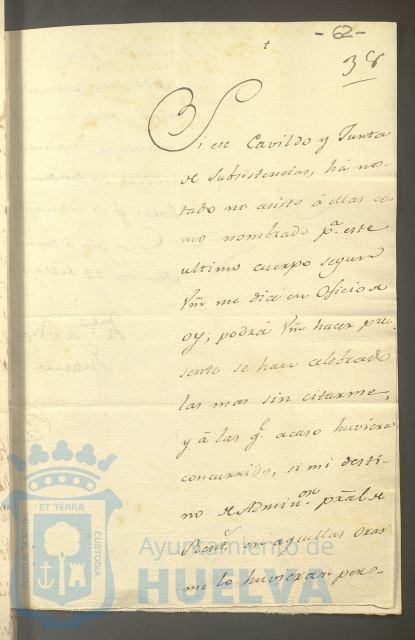 -62-
38
†
Si ese Cavildo y Junta
de Subsistencias, há no-
tado no asisto á ellas co-
mo nombrado pª este
ultimo cuerpo segun
Vm me dice en Oficio de
oy; podrá Vm hacer pre-
sente se han celebrado
las mas sin citarme,
y á las q.e acaso huviera
concurrido, si mi desti-
no de Admin.on pral de
Rent.s en aquellas oras
me lo huvieran per-
ET TERRÆ
CUSTODIA
Ayuntamiento de
HUELVA